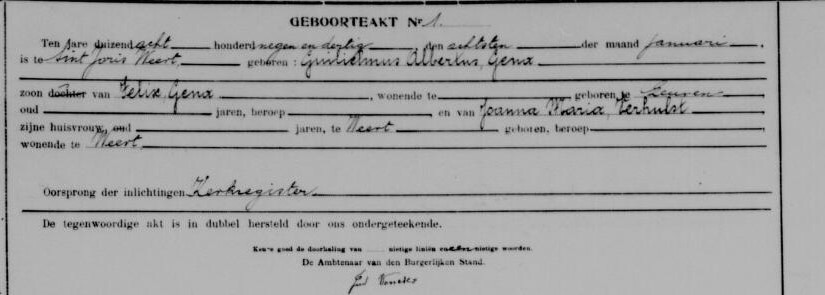 GEBOORTEAKT Nr 1.
Ten jare duizend acht honderd negen en dertig den achtsten der maand Januari,
is te Sint Joris Weert, geboren : Guilielmus Albertus, Gena
zoon dochter van Felix, Gena, wonende te geboren te Leuven
oud jaren, beroep en van Joanna Maria, Verhulst
zijne huisvrouw, oud jaren, te Weert geboren, beroep
wonende te Weert
Oorsprong der inlichtingen Kerkregister
De tegenwoordige akt is in dubbel hersteld door ons ondergeteekende.
Keure goed de doorhaling van nietige liniën en nietige woorden.
De Ambtenaar van den Burgerlijken Stand.